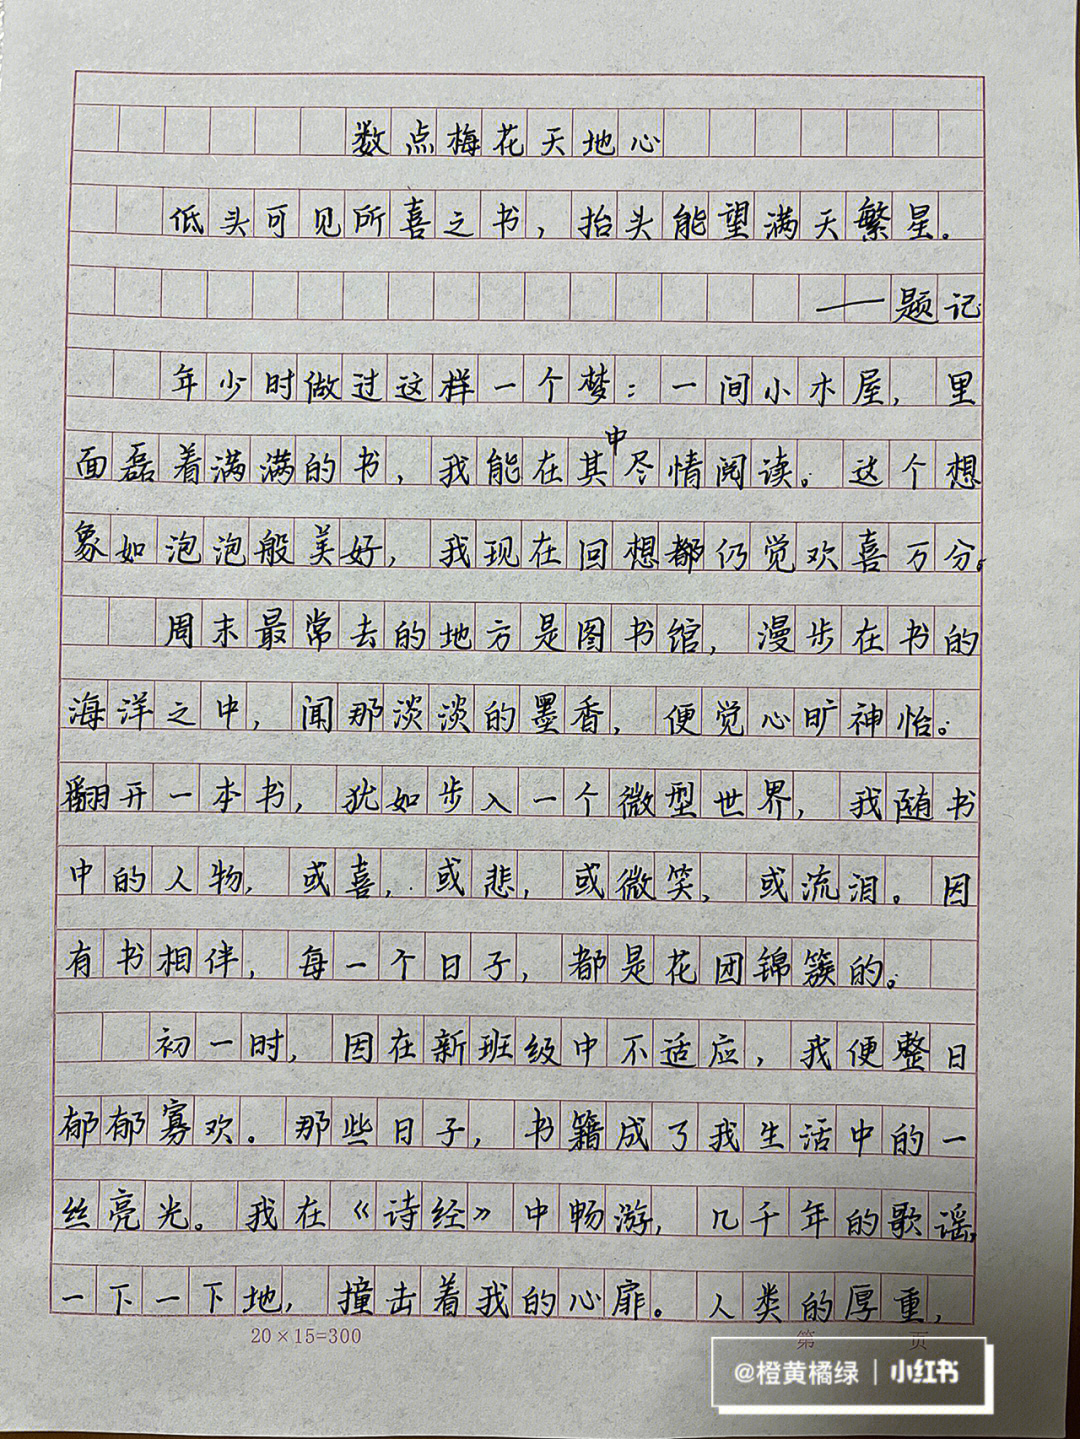 数点梅花天地心
低头可见所喜之书，抬头能望满天繁星。
——题记
年少时做过这样一个梦：一间小木屋，里
面磊着满满的书，我能在其中尽情阅读。这个想
象如泡泡般美好，我现在回想都仍觉欢喜万分。
周末最常去的地方是图书馆，漫步在书的
海洋之中，闻那淡淡的墨香，便觉心旷神怡。
翻开一本书，犹如步入一个微型世界，我随书
中的人物，或喜，或悲，或微笑，或流泪。因
有书相伴，每一个日子，都是花团锦簇的。
初一时，因在新班级中不适应，我便整日
郁郁寡欢。那些日子，书籍成了我生活中的一
丝亮光。我在《诗经》中畅游，几千年的歌谣，
一下一下地，撞击着我的心扉。人类的厚重，
20×15=300
第 页
@橙黄橘绿 | 小红书